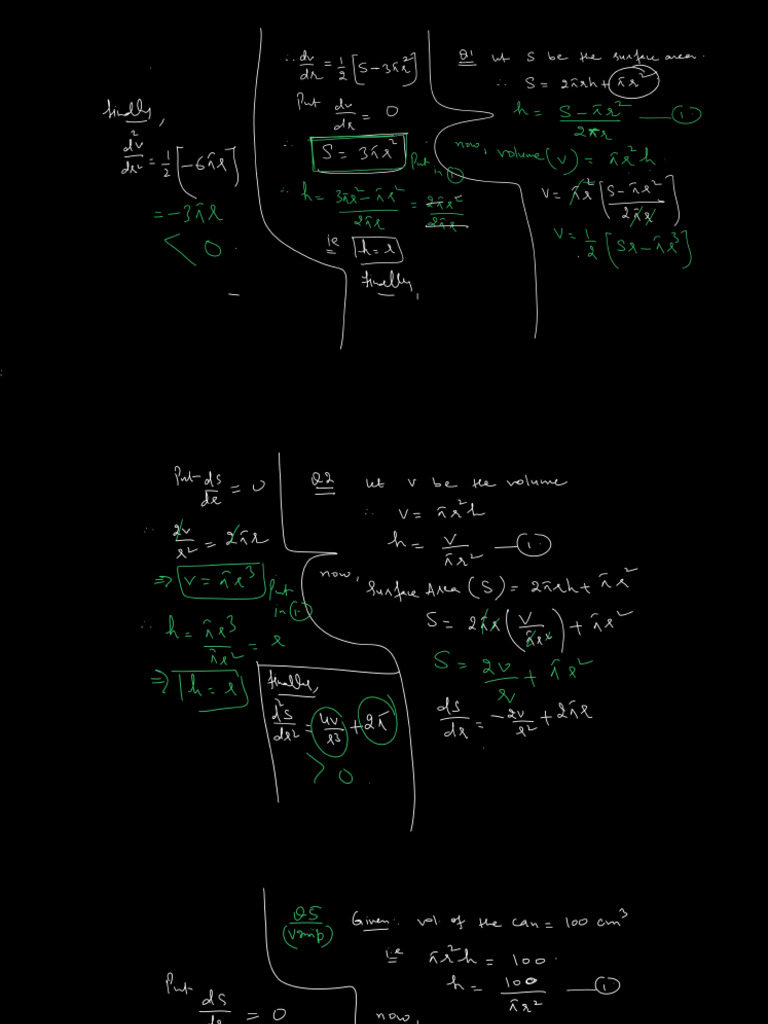 Q1 Let S be the surface area.
∴ S = 2πrh + πr²
h = (S − πr²)/(2πr) —— (1)
now, volume (V) = πr²h
V = πr² [(S − πr²)/(2πr)]
V = 1/2 [Sr − πr³]
∴ dv/dr = 1/2 [S − 3πr²]
Put dv/dr = 0
∴ S = 3πr² Put in (1)
∴ h = (3πr² − πr²)/(2πr) = 2πr²/2πr
ie h = r
Finally,
Finally,
d²v/dr² = 1/2 [−6πr]
= −3πr
< 0.
Q2 Let V be the volume
∴ V = πr²h
h = V/πr² —— (1)
now, Surface Area (S) = 2πrh + πr²
S = 2πr (V/πr²) + πr²
S = 2V/r + πr²
dS/dr = −2V/r² + 2πr
Put dS/dr = 0
∴ 2V/r² = 2πr
⇒ V = πr³ Put in (1)
∴ h = πr³/πr² = r
⇒ h = r
Finally,
d²S/dr² = 4V/r³ + 2π
> 0.
Q5 (Vimp) Given: vol. of the can = 100 cm³
ie πr²h = 100.
h = 100/πr² —— (1)
now,
Put dS/dr = 0